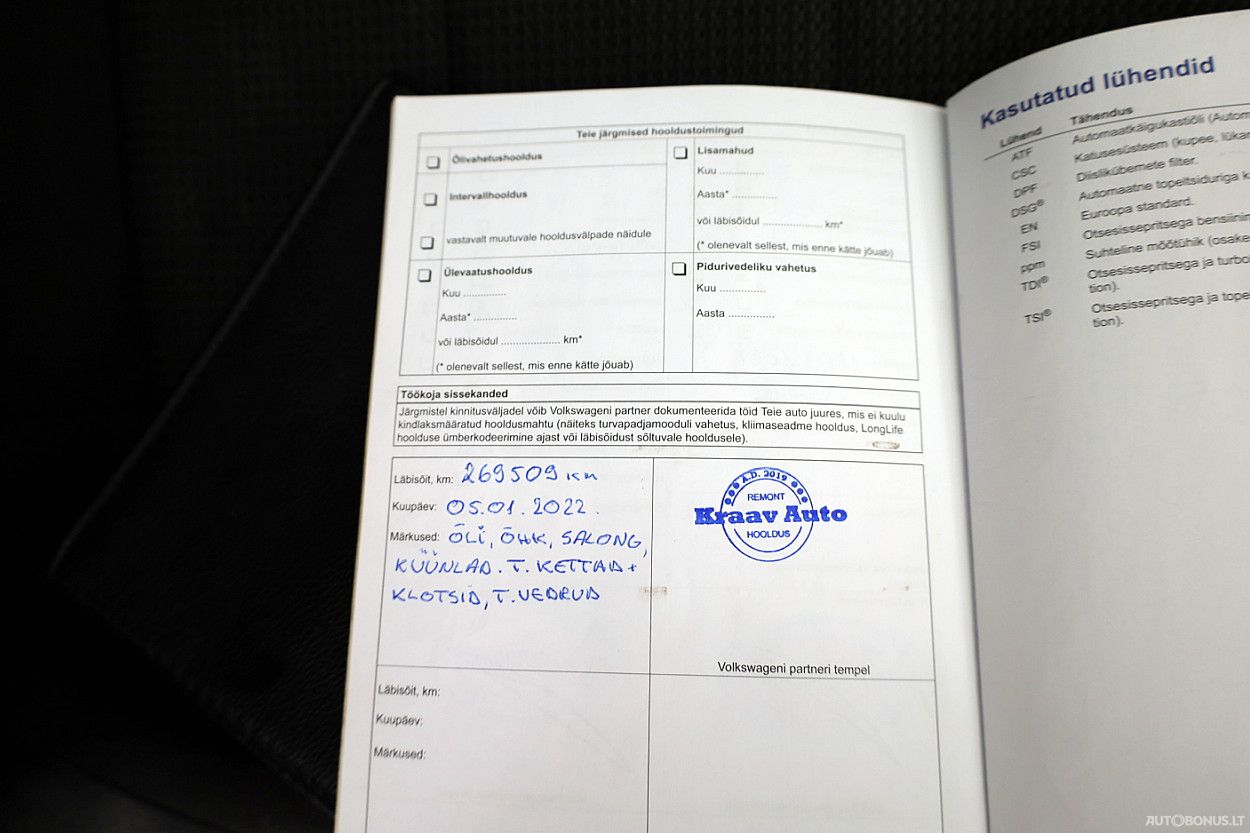 Teie järgmised hooldustoimingud
Õlivahetushooldus
Intervallhooldus
vastavalt muutuvale hooldusvälpade näidule
Ülevaatushooldus
Kuu ..............
Aasta* ..............
või läbisõidul ................... km*
(* olenevalt sellest, mis enne kätte jõuab)
Lisamahud
Kuu ..............
Aasta* ..............
või läbisõidul ................... km*
(* olenevalt sellest, mis enne kätte jõuab)
Pidurivedeliku vahetus
Kuu ..............
Aasta ..............
Töökoja sissekanded
Järgmistel kinnitusväljadel võib Volkswageni partner dokumenteerida töid Teie auto juures, mis ei kuulu
kindlaksmääratud hooldusmahtu (näiteks turvapadjamooduli vahetus, kliimaseadme hooldus, LongLife
hoolduse ümberkodeerimine ajast või läbisõidust sõltuvale hooldusele).
Läbisõit, km: 269509 km
Kuupäev: 05.01.2022.
Märkused: ÕLI, ÕHK, SALONG,
KÜÜNLAD. T. KETTAD +
KLOTSID, T. VEDRUD
A.D. 2019
REMONT
Kraav Auto
HOOLDUS
Volkswageni partneri tempel
Läbisõit, km:
Kuupäev:
Märkused:
Kasutatud lühendid
Lühend Tähendus
ATF Automaatkäigukastiõli (Autom
CSC Katusesüsteem (kupee, lüka
DPF Diislikübemete filter.
DSG® Automaatne topeltsiduriga k
EN Euroopa standard.
FSI Otsesissepritsega bensiinin
ppm Suhteline mõõtühik (osake
TDI® Otsesissepritsega ja turbo
tion).
TSI® Otsesissepritsega ja tope
tion).
AUTOBONUS.LT